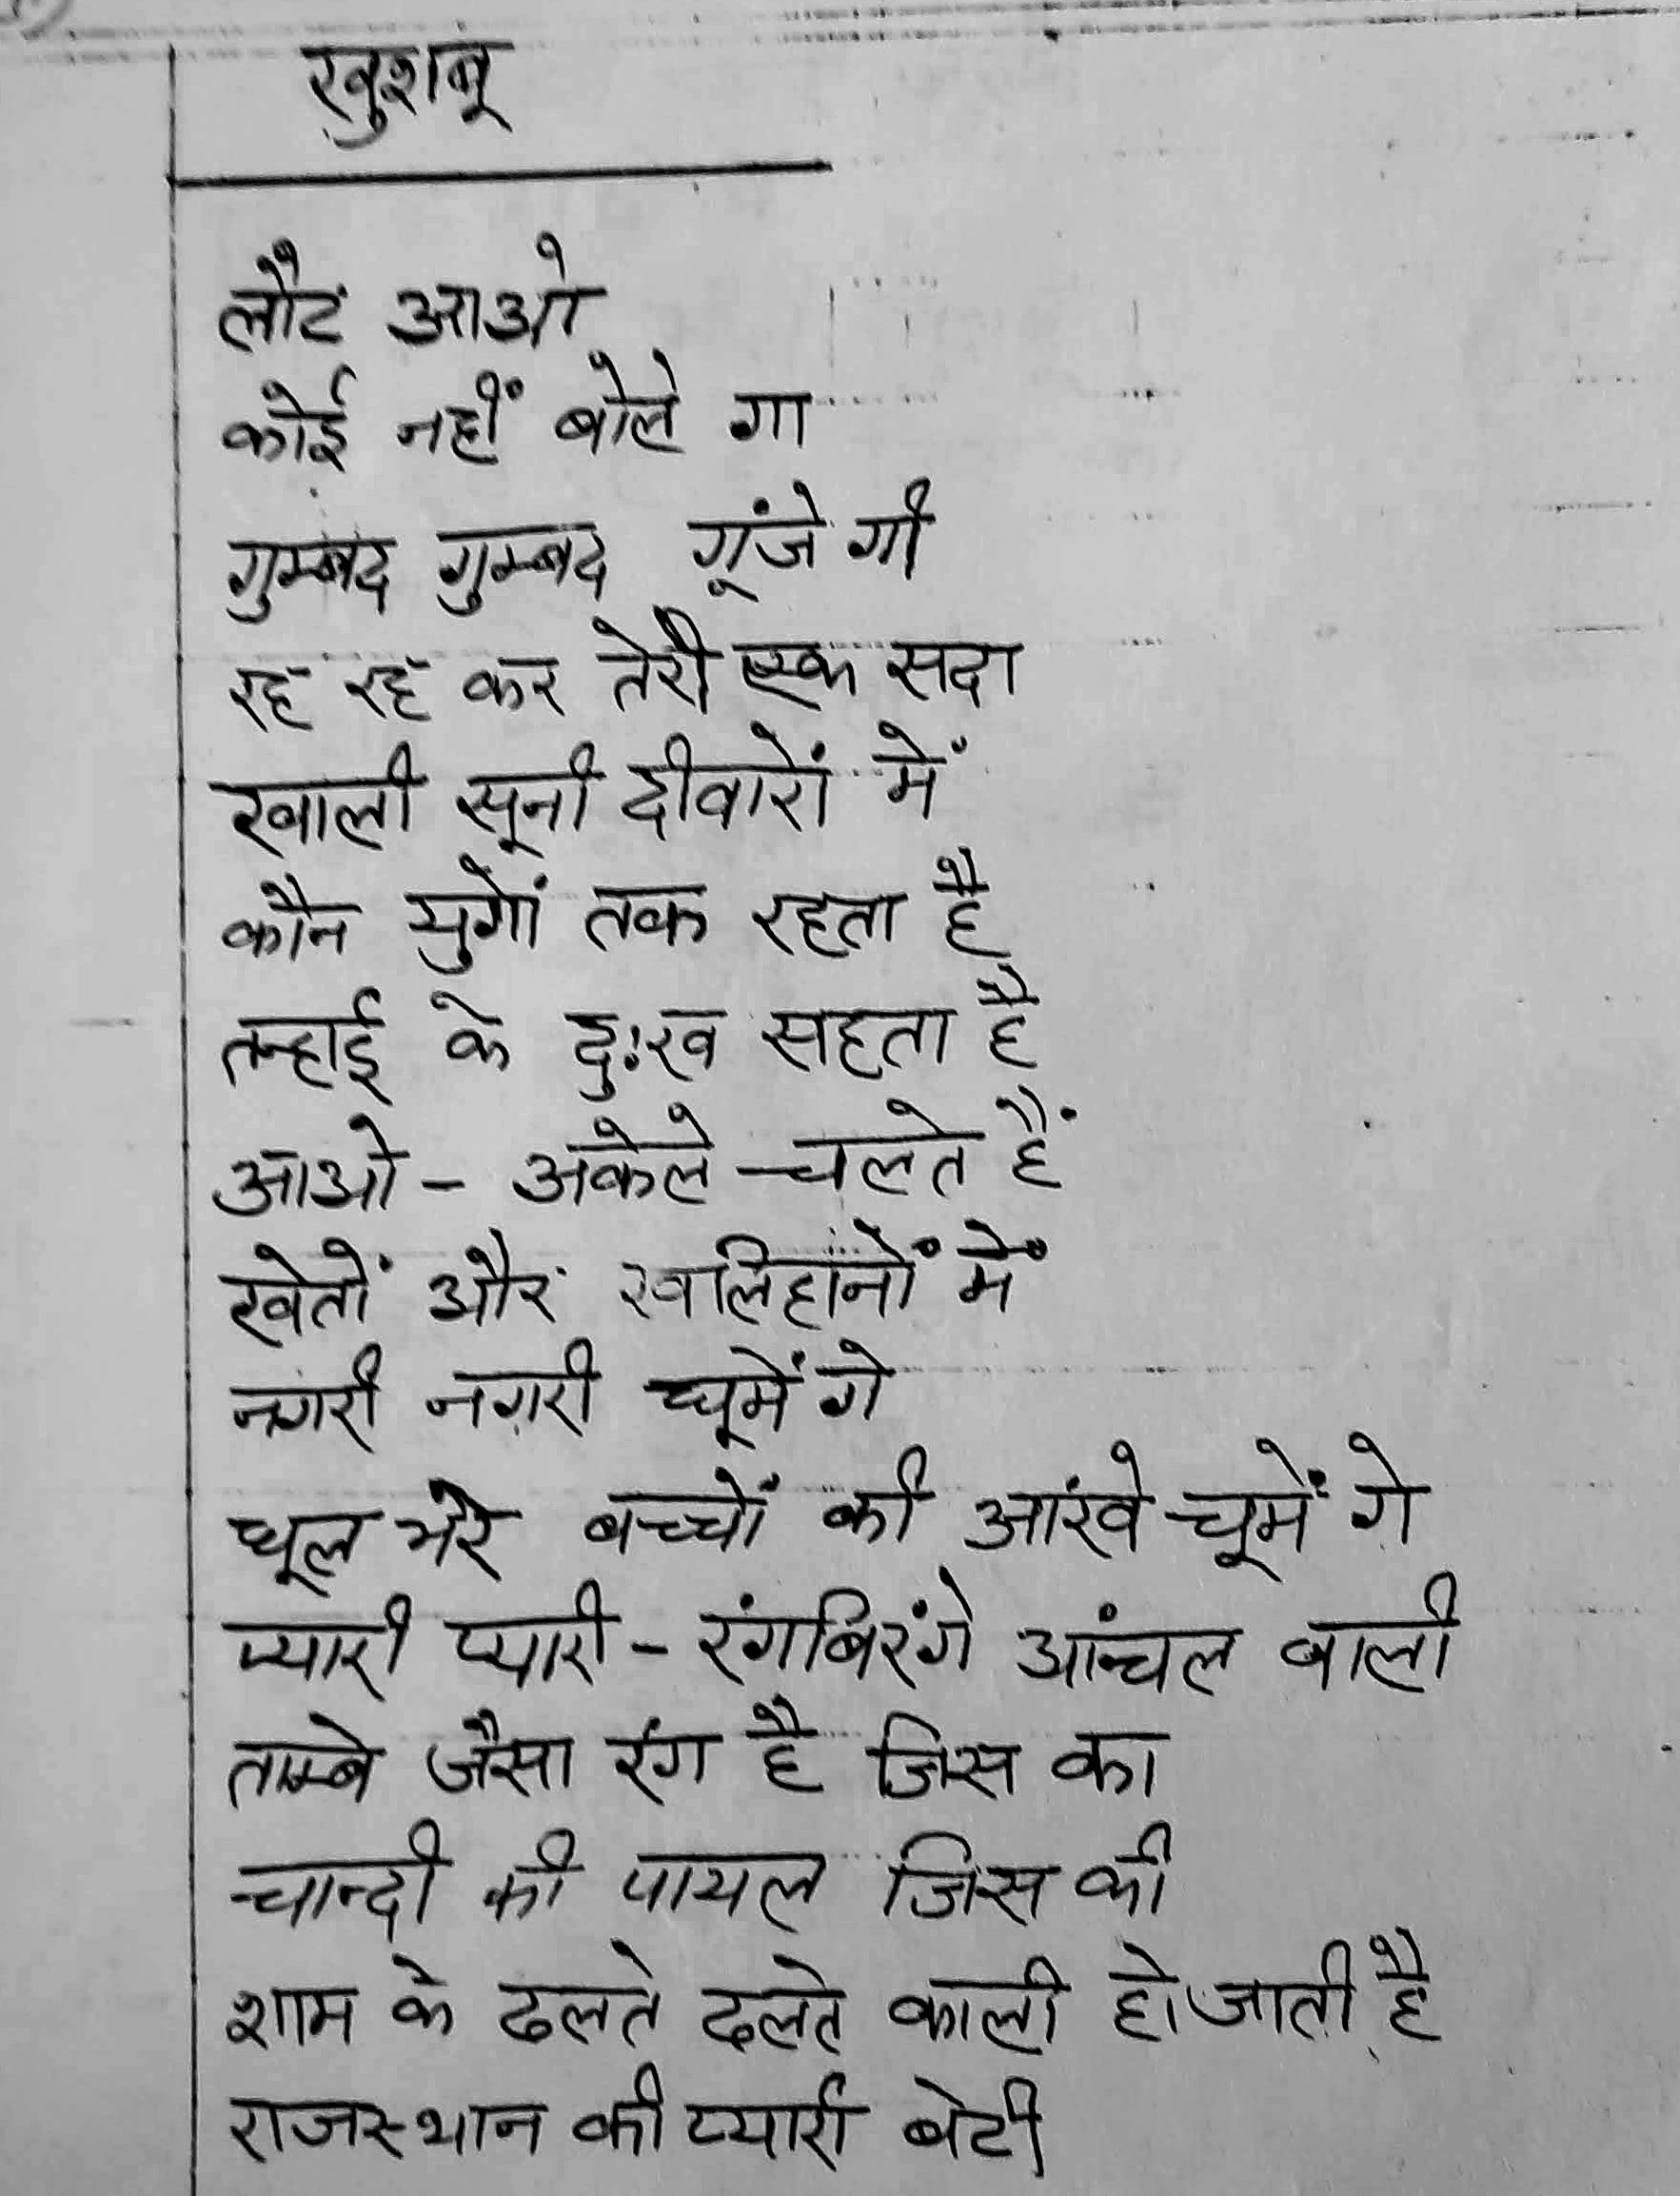 खुशबू
लौट आओ
कोई नहीं बोले गा
गुम्बद गुम्बद गूंजे गी
रह रह कर तेरी एक सदा
खाली सूनी दीवारों में
कौन युगों तक रहता है
तन्हाई के दुःख सहता है
आओ - अकेले चलते हैं
खेतों और खलिहानों में
नगरी नगरी घूमें गे
धूल भरे बच्चों की आंखे चूमें गे
प्यारी प्यारी - रंगबिरंगे आंन्चल वाली
ताम्बे जैसा रंग है जिस का
चान्दी की पायल जिस की
शाम के ढलते ढलते काली हो जाती है
राजस्थान की प्यारी बेटी